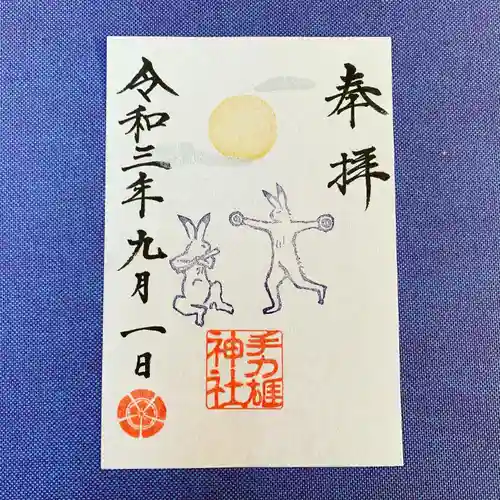 奉拝
手力雄
神社
令和三年九月一日